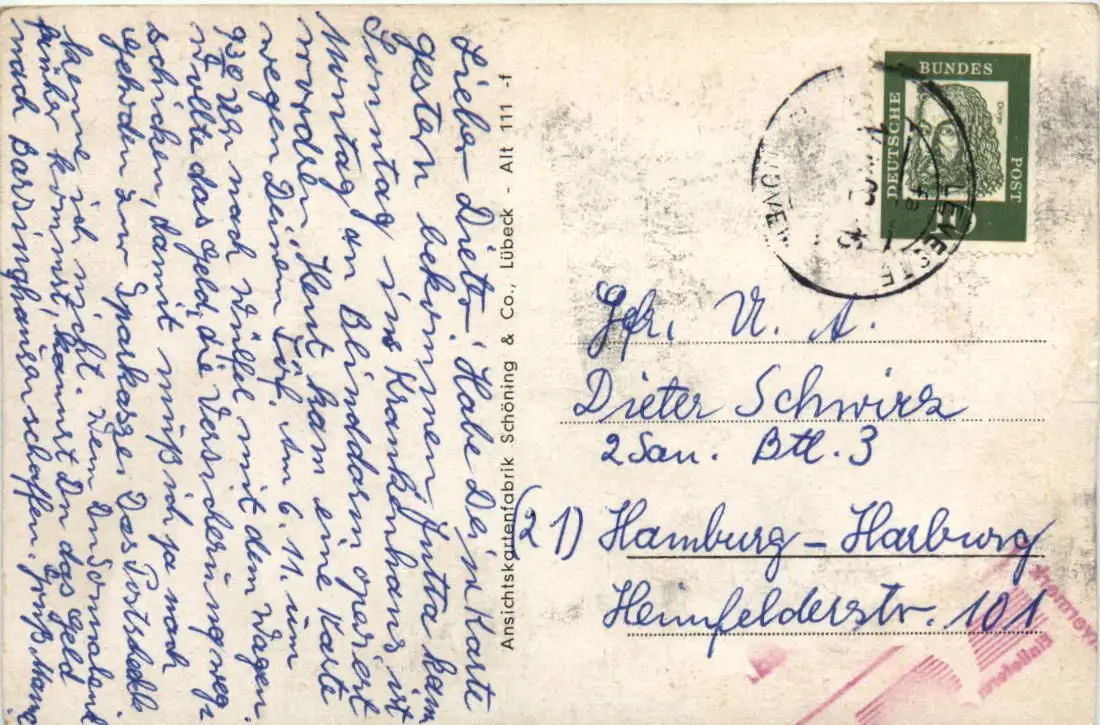 Lieber Dieter! Habe Deine Karte
gestern bekommen. Jutta kam
Sonntag ins Krankenhaus ist
Montag am Blinddarm operiert
worden. Heut kam eine Karte
wegen Deinem Führ. Am 6. 11. um
9³⁰ Uhr nach Wülfel mit dem Wagen.
Wollte das Geld, die Versicherung weg-
schicken, damit muß ich ja nach
Gehrden zur Sparkasse. Das Postscheck
kenne ich nicht. Wenn Du Sonnabend
früher kommst, kannst Du das Geld
nach Barsinghausen schaffen. Gruß Mama
Ansichtskartenfabrik Schöning & Co., Lübeck - Alt 111 -f
DEUTSCHE
BUNDES
POST
Dürer
LEVESTE
HANNOVER
Gefr. U. A.
Dieter Schwirz
2 San. Btl. 3
(21) Hamburg - Harburg
Heimfelderstr. 101